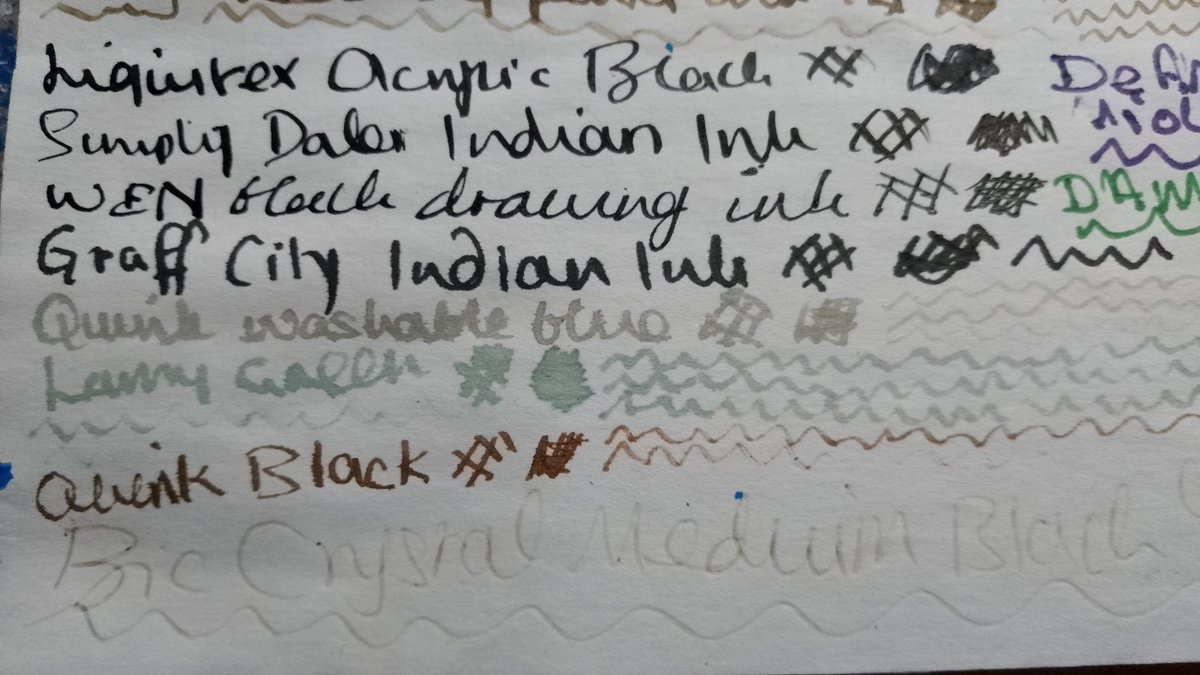 Liquitex Acrylic Black
Simply Daler Indian Ink
W&N black drawing ink
Graff City Indian Ink
Quink washable blue
Lamy Green
Quink Black
Bic Crystal Medium Black